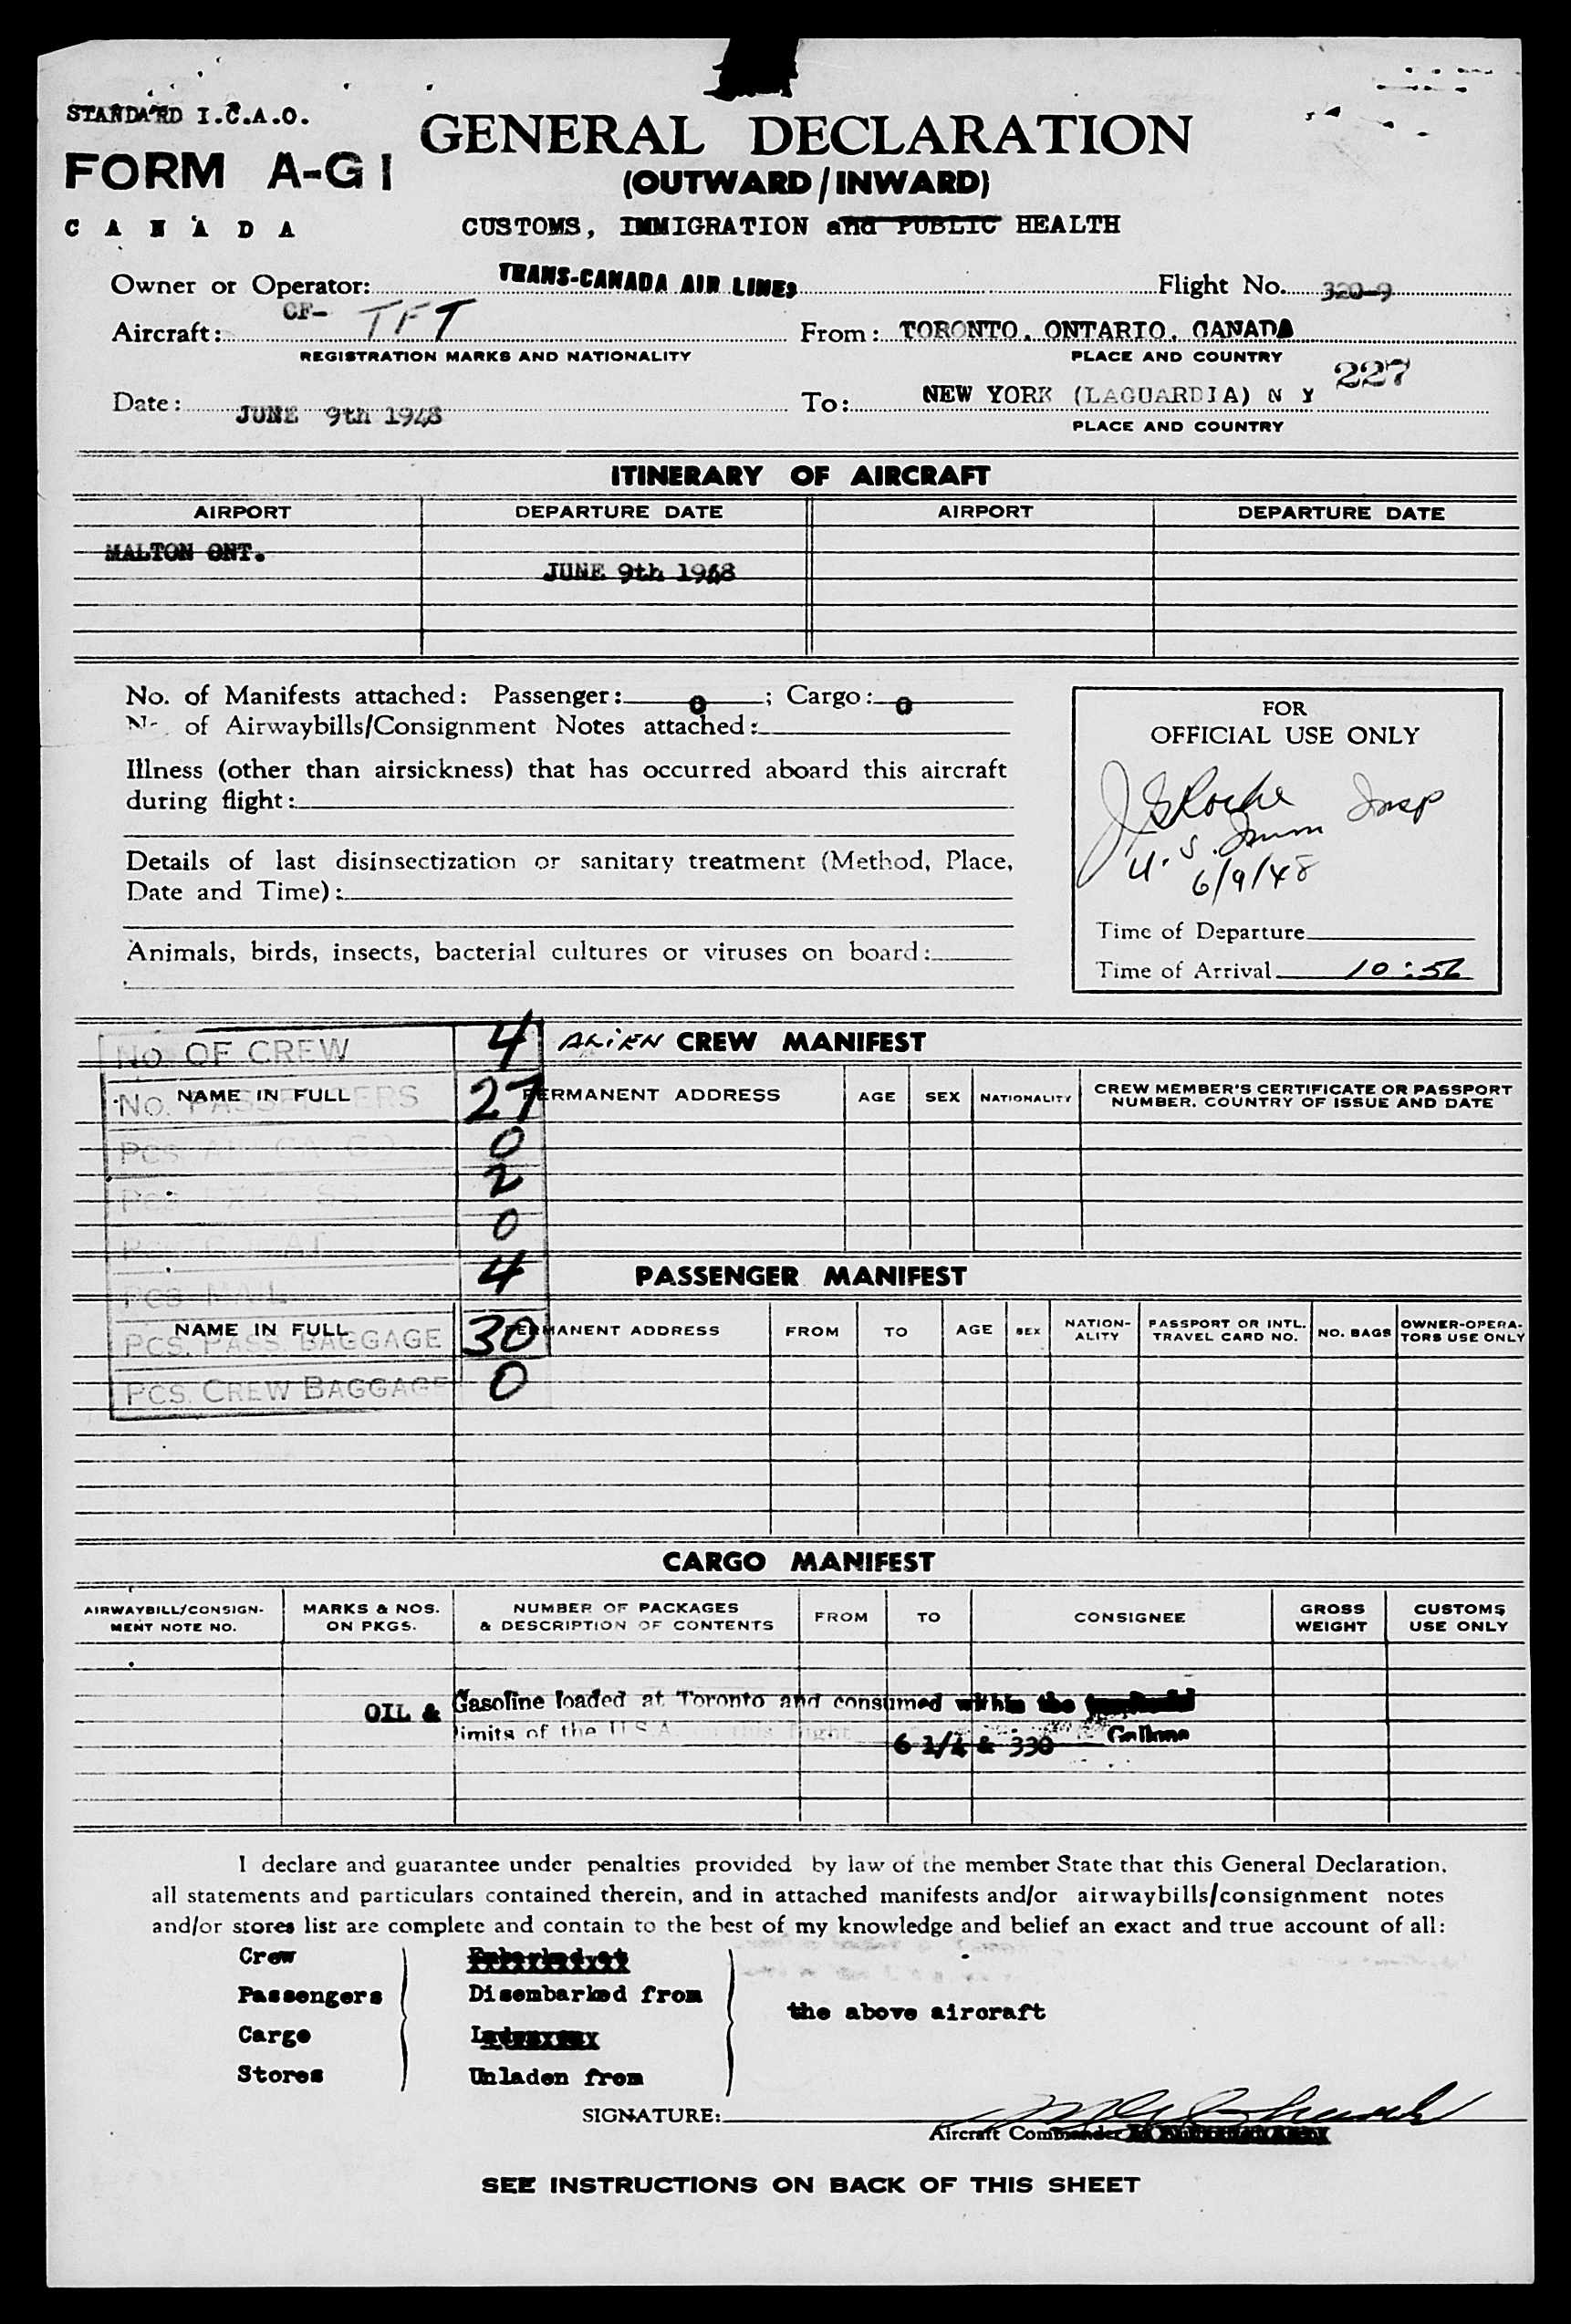 STANDARD I.C.A.O.
FORM A-G1
CANADA
GENERAL DECLARATION
(OUTWARD/INWARD)
CUSTOMS, IMMIGRATION and PUBLIC HEALTH
Owner or Operator: TRANS-CANADA AIR LINES Flight No. 320-9
Aircraft: CF- TFT From: TORONTO, ONTARIO, CANADA
REGISTRATION MARKS AND NATIONALITY PLACE AND COUNTRY
227
Date: JUNE 9th 1948 To: NEW YORK (LAGUARDIA) N Y
PLACE AND COUNTRY
ITINERARY OF AIRCRAFT
AIRPORT DEPARTURE DATE AIRPORT DEPARTURE DATE
MALTON ONT.
JUNE 9th 1948
No. of Manifests attached: Passenger: 0; Cargo: 0
of Airwaybills/Consignment Notes attached:
Illness (other than airsickness) that has occurred aboard this aircraft
during flight:
Details of last disinsectization or sanitary treatment (Method, Place,
Date and Time):
Animals, birds, insects, bacterial cultures or viruses on board:
FOR
OFFICIAL USE ONLY
Roche Insp
U.S. Imm
6/9/48
Time of Departure
Time of Arrival 10:56
ALIEN CREW MANIFEST
NAME IN FULL PERMANENT ADDRESS AGE SEX NATIONALITY CREW MEMBER'S CERTIFICATE OR PASSPORT
NUMBER, COUNTRY OF ISSUE AND DATE
No. OF CREW 4
No. PASSENGERS 27
PCS. 0
PCS. EXPRESS 2
0
PCS MAIL 4
PCS. PASS. BAGGAGE 30
PCS. CREW BAGGAGE 0
PASSENGER MANIFEST
NAME IN FULL PERMANENT ADDRESS FROM TO AGE SEX NATION-
ALITY PASSPORT OR INTL.
TRAVEL CARD NO. NO. BAGS OWNER-OPERA-
TORS USE ONLY
CARGO MANIFEST
AIRWAYBILL/CONSIGN-
MENT NOTE NO. MARKS & NOS.
ON PKGS. NUMBER OF PACKAGES
& DESCRIPTION OF CONTENTS FROM TO CONSIGNEE GROSS
WEIGHT CUSTOMS
USE ONLY
OIL & Gasoline loaded at Toronto and consumed within the
limits of the U.S.A. on this flight 6 1/4 & 330 Gallons
I declare and guarantee under penalties provided by law of the member State that this General Declaration,
all statements and particulars contained therein, and in attached manifests and/or airwaybills/consignment notes
and/or stores list are complete and contain to the best of my knowledge and belief an exact and true account of all:
Crew
Passengers Disembarked from
the above aircraft
Cargo
Stores Unladen from
SIGNATURE:
Aircraft Commander
SEE INSTRUCTIONS ON BACK OF THIS SHEET